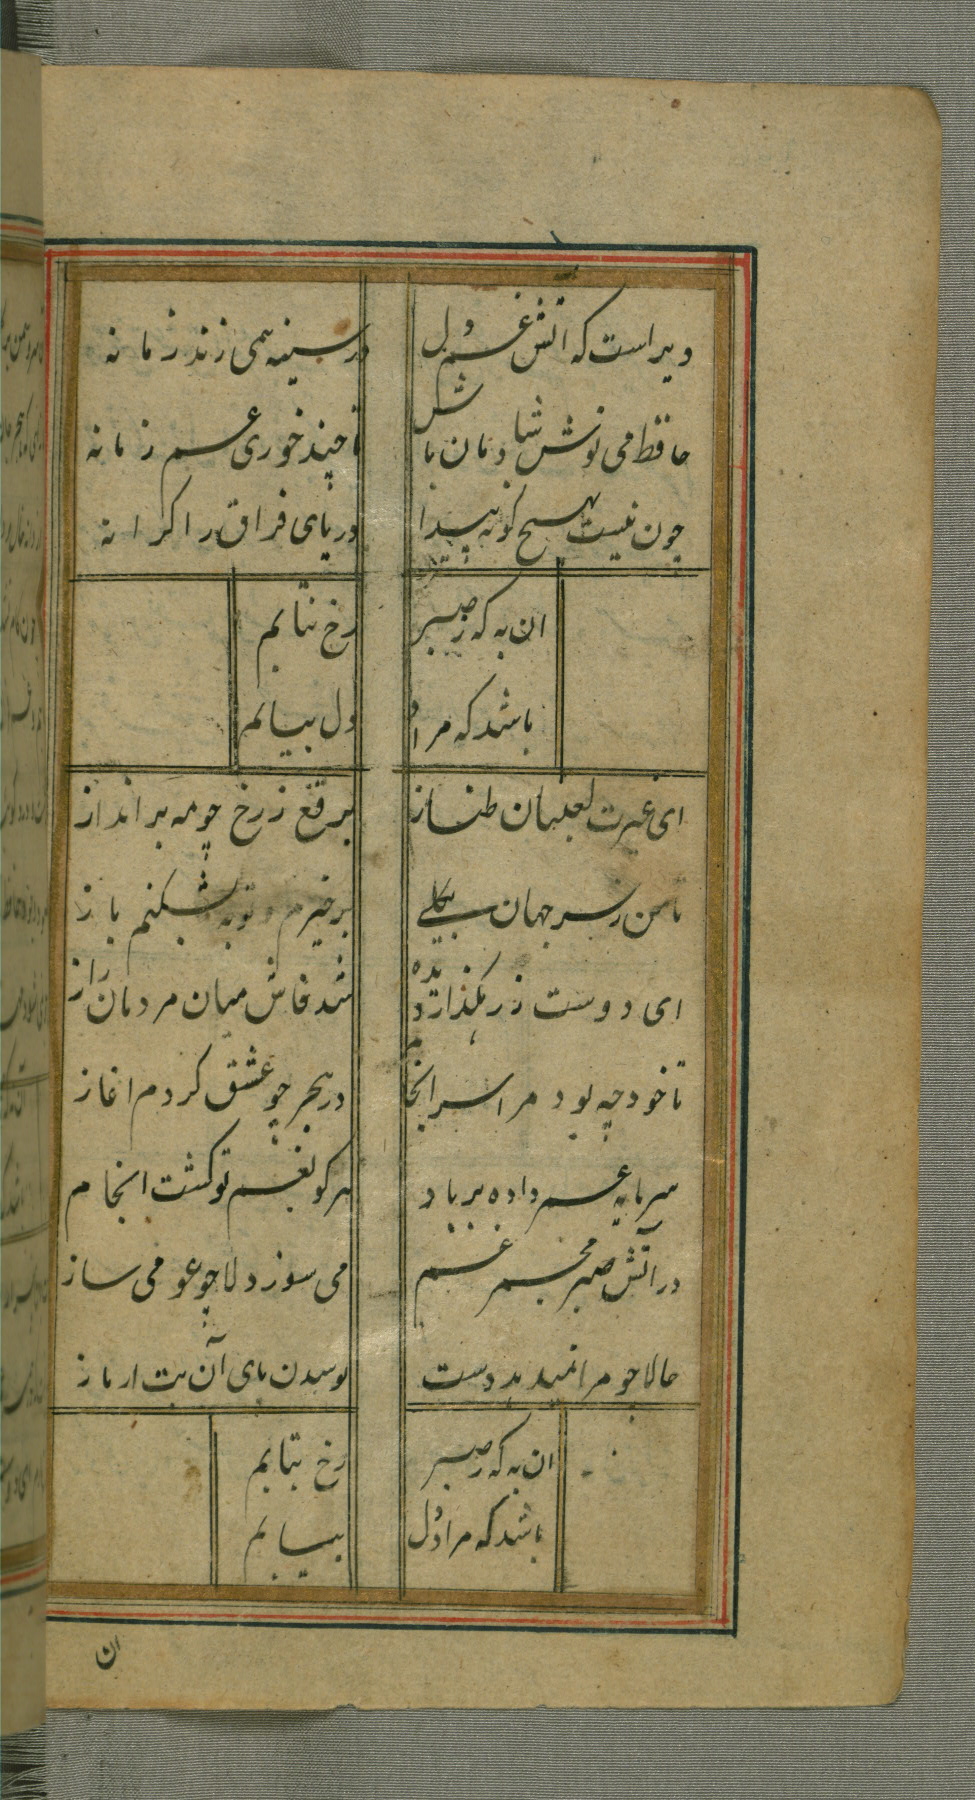 دیر است که اتش غم دل
در سینه همی زند زمانه
حافظ می نوش شادمان باش
تا چند خوری غم زمانه
چون نیست بهیچ کونه پیدا
دریای فراق را کرانه
ان به که ز صبر
رخ نتابم
باشد که مراد
دل بیابم
ای غیرت لعبتان طناز
برقع ز رخ چو مه برانداز
تا من ز سر جهان بیکلی
برخیزم و توبه بشکنم باز
ای دوست ز رهکذار دیده
شد فاش میان مردمان راز
تا خود چه بود مرا سرانجام
در هجر چو عشق کردم اغاز
سرمایه عمر داده بر باد
هر کو بغم تو کشت انجام
در آتش صبر مجمر غم
می سوز دلا چو عود می ساز
حالا چو مرا نمیدهد دست
بوسیدن پای آن بت ار باز
ان به که ز صبر
رخ نتابم
باشد که مراد دل
بیابم
ان